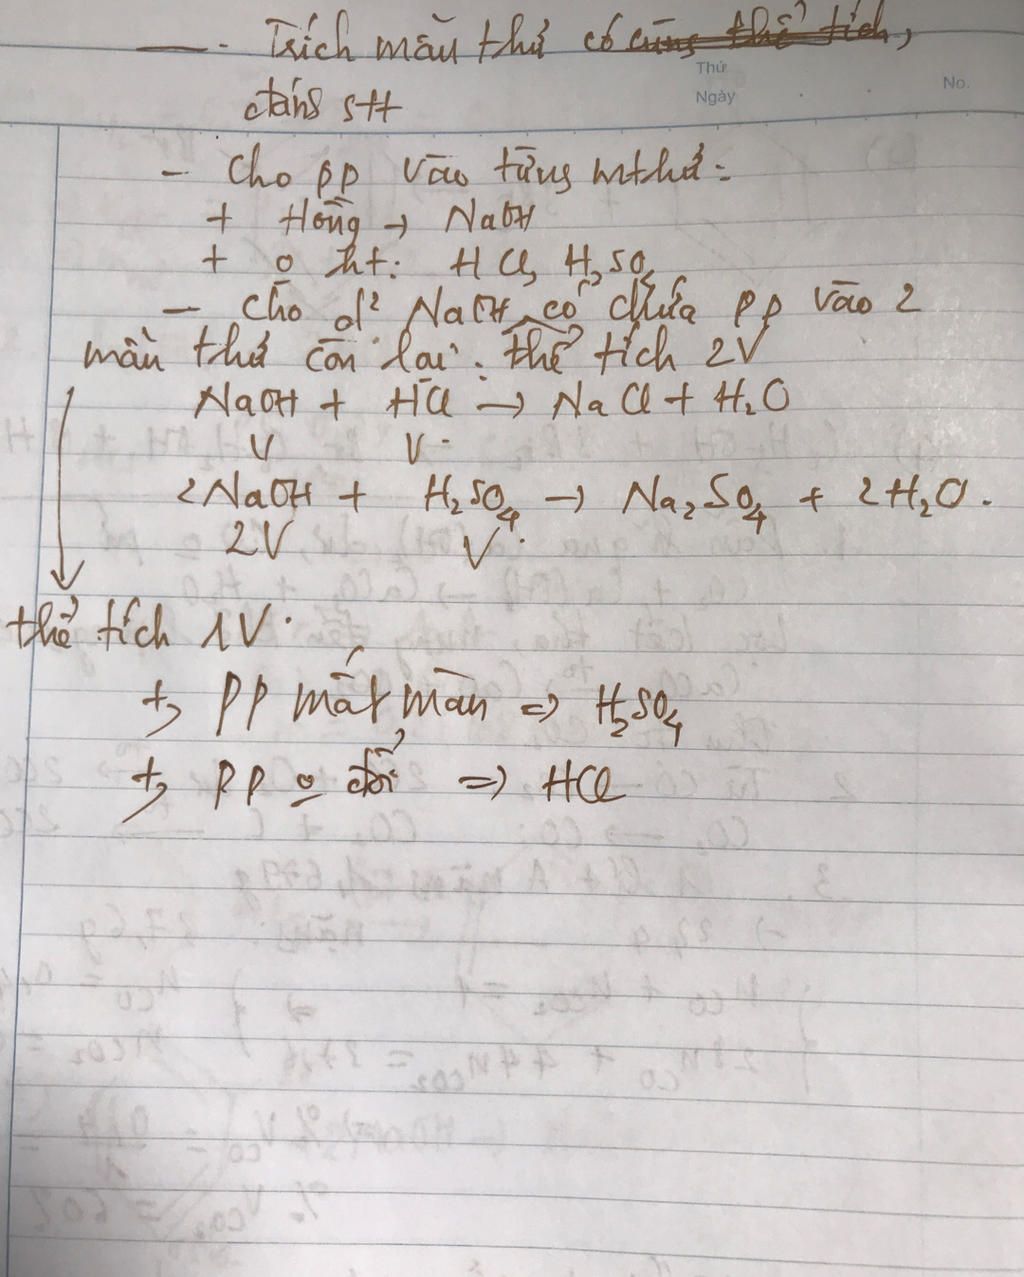 - Trích mẫu thử có cùng thể tích,
Thứ
Ngày
No.
đánh stt
- Cho pp vào từng mthử:
+ Hồng → NaOH
+ o ht: HCl, H₂SO₄
- Cho d² NaOH có chứa pp vào 2
mẫu thử còn lại: thể tích 2V
NaOH + HCl → NaCl + H₂O
V V
2NaOH + H₂SO₄ → Na₂SO₄ + 2H₂O.
2V V
thể tích 1V.
+, pp mất màu => H₂SO₄
+, pp o đổi => HCl